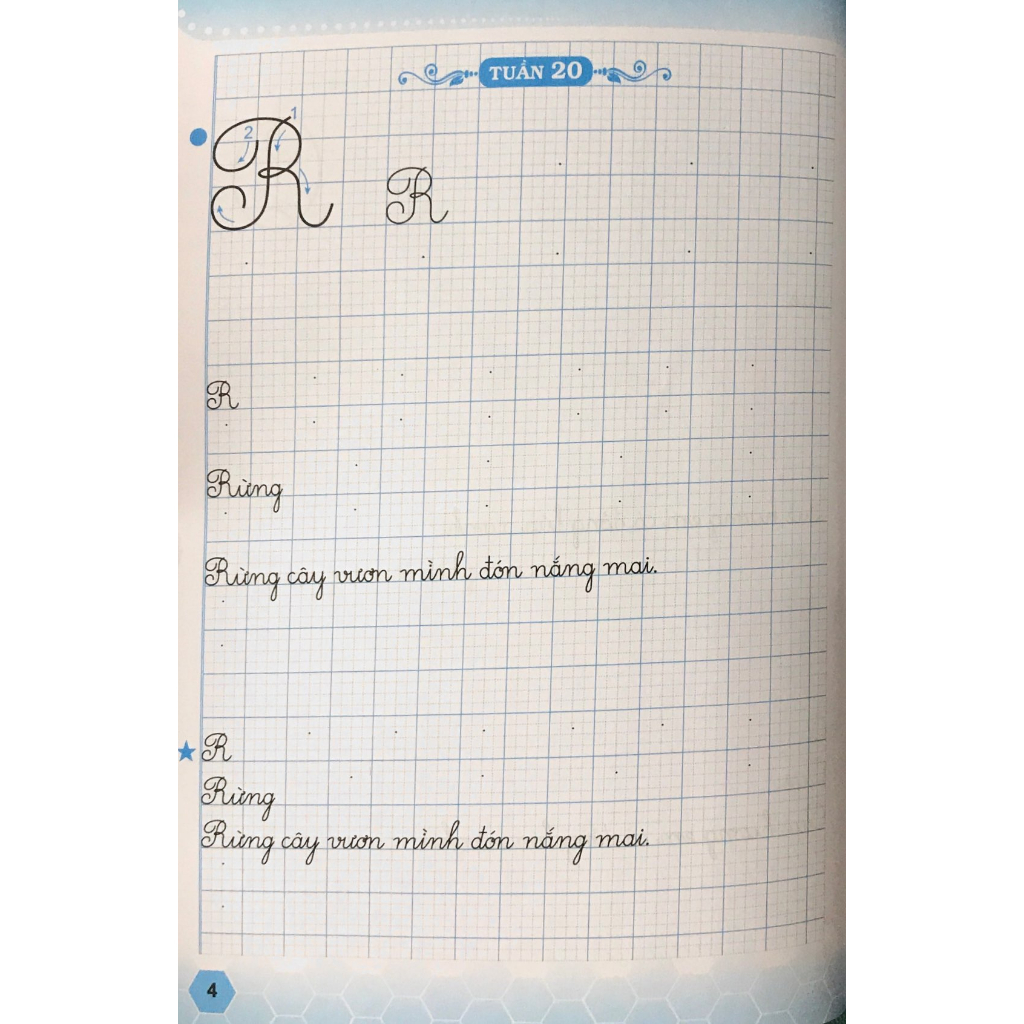 TUẦN 20
1
2
R R
R
Rừng
Rừng cây vươn mình đón nắng mai.
R
Rừng
Rừng cây vươn mình đón nắng mai.
4